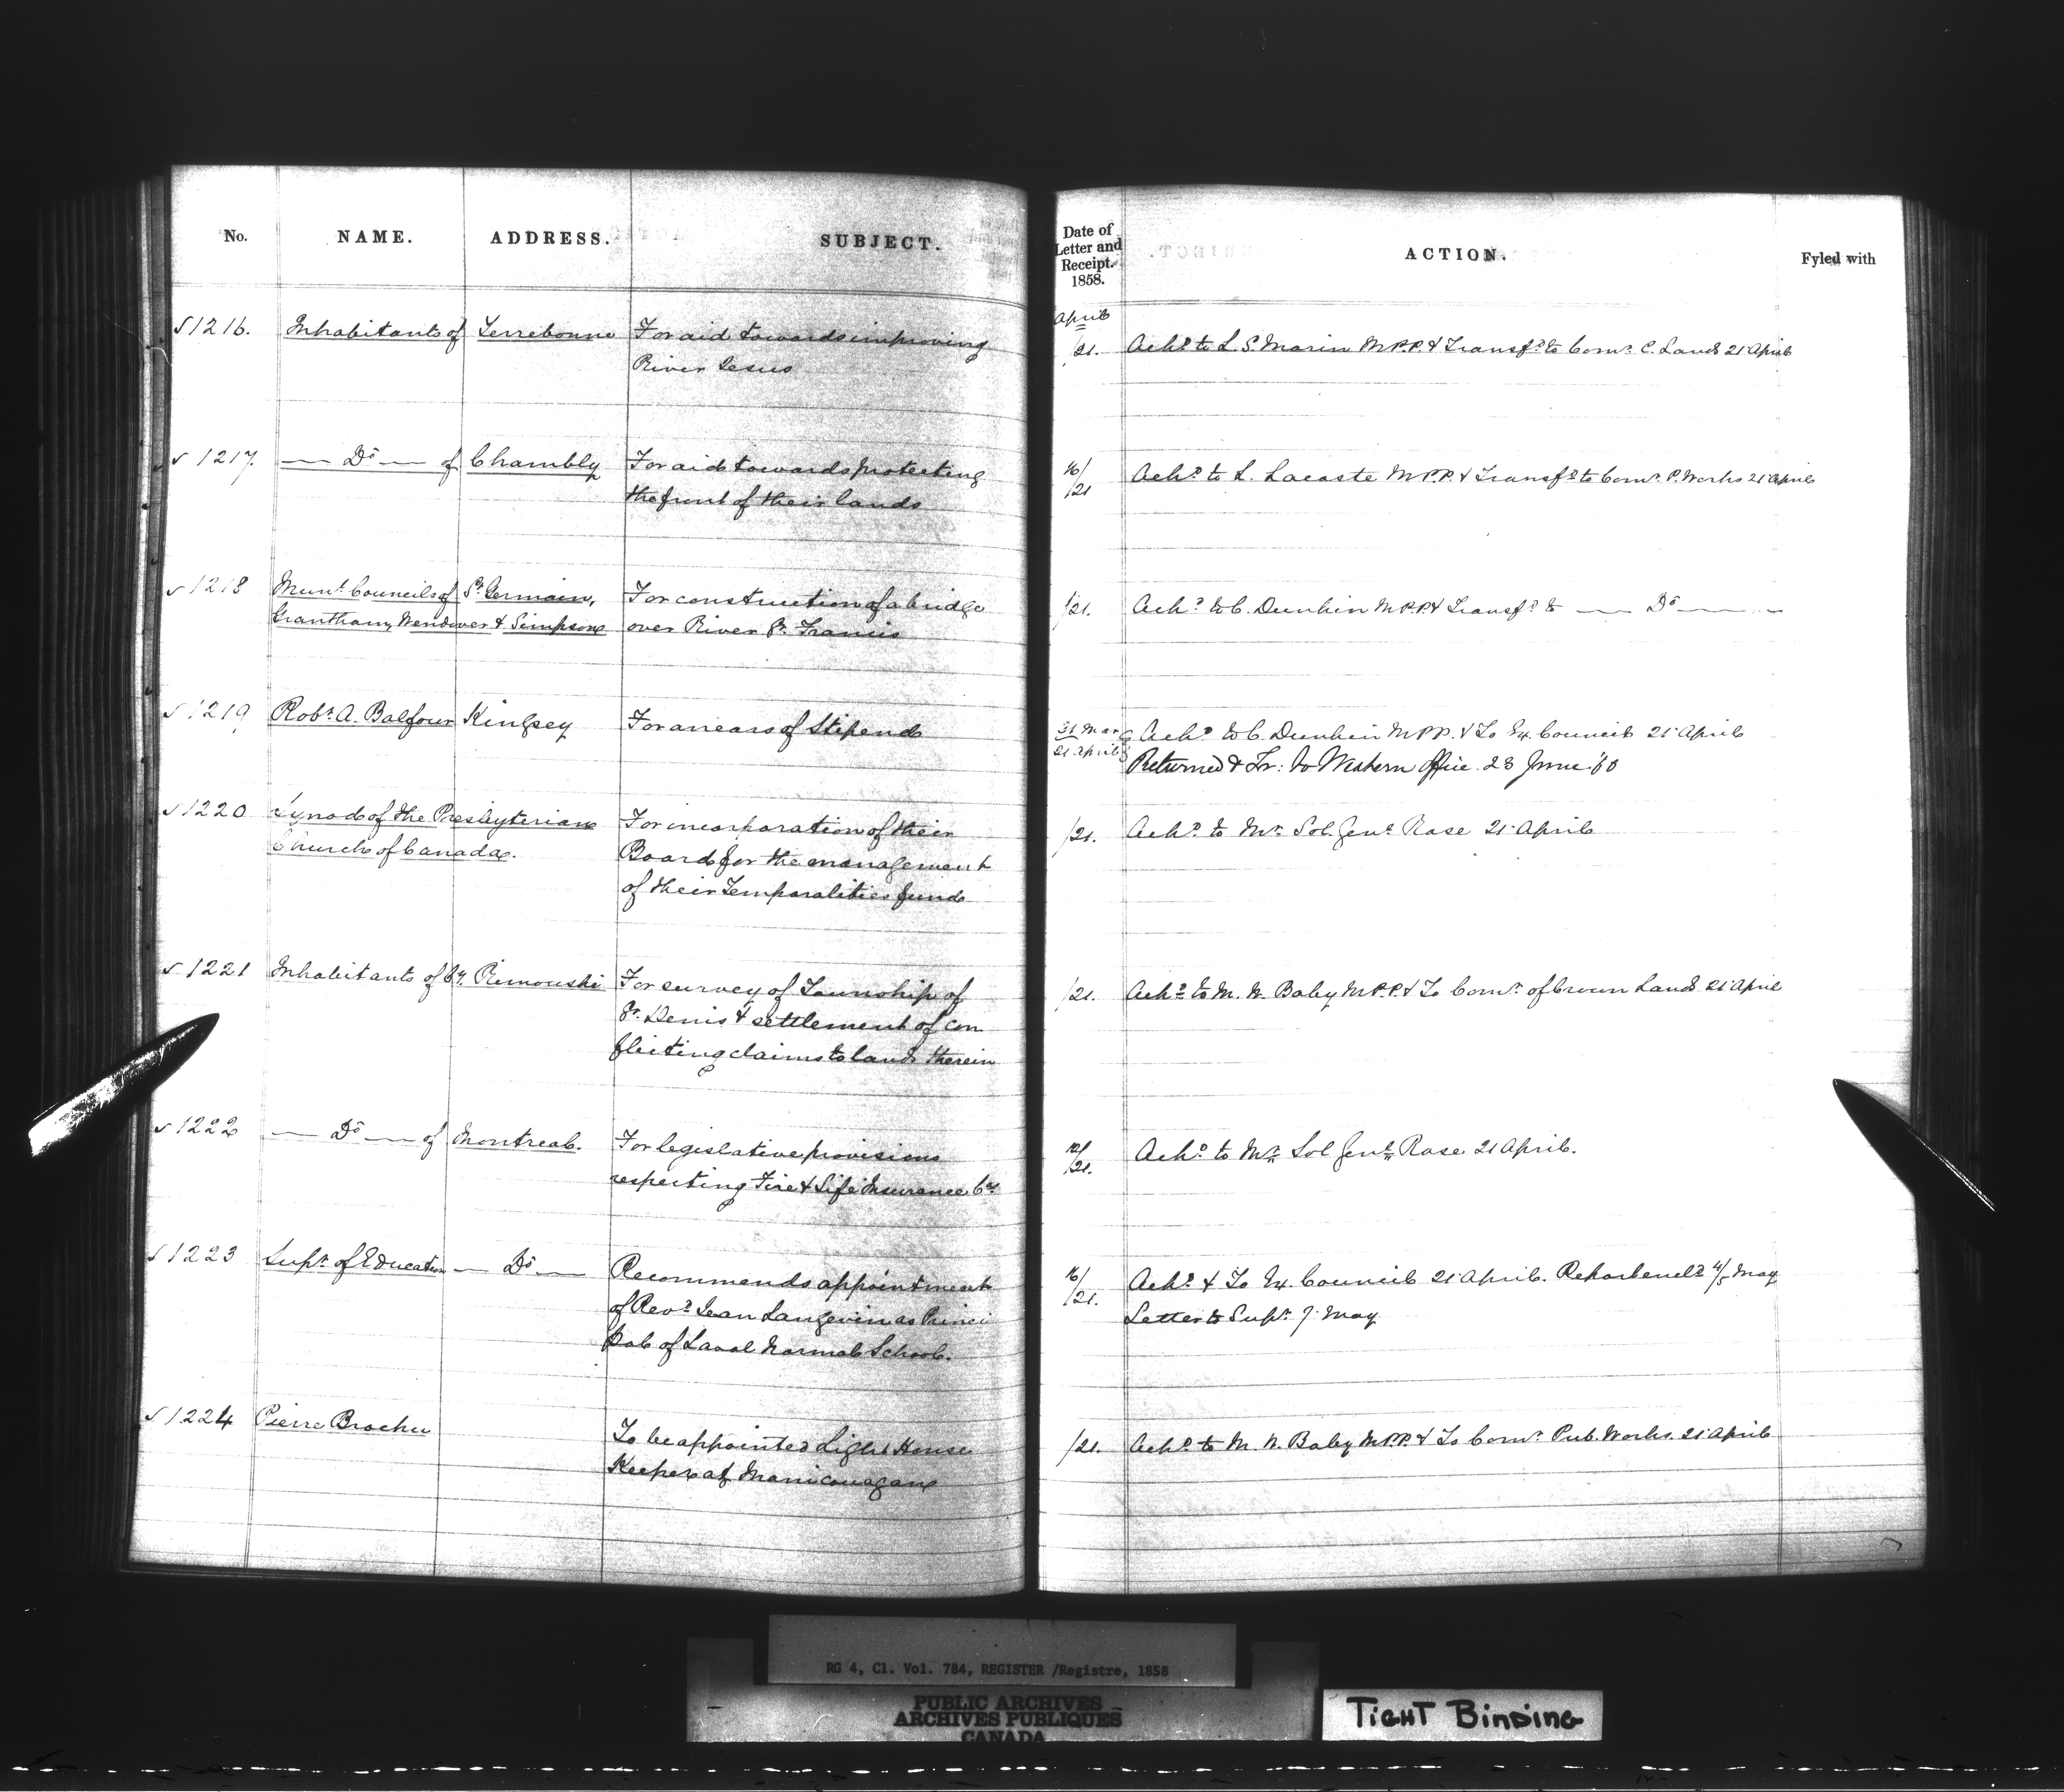 No. NAME. ADDRESS. SUBJECT.
Date of Letter and Receipt. 1858. ACTION. Fyled with
April
1216. Inhabitants of Terrebonne For aid towards improving
River Jesus
/21. Ack.d to L. S. Morin M.P.P. & Transf.d to Com.r C. Lands 21 April
1217. — D.o — of Chambly For aid towards protecting
the front of their lands
16/21 Ack.d to L. Lacoste M.P.P. & Transf.d to Com.r P. Works 21 April
1218 Mun.l Councils of St. Germain, For construction of a bridge
Grantham, Wendover & Simpson over River St. Francis
/21. Ack.d to C. Dunkin M.P.P. & Transf.d to — D.o —
1219 Rob.t A. Balfour Kingsey For arrears of Stipend
31 Mar
21 April Ack.d to C. Dunkin M.P.P. & To Ex. Council 21 April
Returned & Tr: to Western Office 23 June '60
1220 Synod of the Presbyterian For incorporation of their
Church of Canada. Board for the management
of their Temporalities fund
/21. Ack.d to Mr. Sol. Gen.l Rose 21 April
1221 Inhabitants of Cy. Rimouski For survey of Township of
St. Denis & settlement of con
flicting claims to lands therein
/21. Ack.d to M. W. Baby M.P.P. & To Com.r of Crown Lands 21 April
1222 — D.o — of Montreal. For legislative provisions
respecting Fire & Life Insurance Co.s
12/21. Ack.d to Mr. Sol Gen.l Rose 21 April.
1223 Sup.t of Education — D.o — Recommends appointment
of Rev.d Jean Langevin as Princi
pal of Laval Normal School.
16/21. Ack.d & To Ex. Council 21 April. Rep.t 4/5 May
Letter to Sup.t 7 May
1224 Pierre Brochu To be appointed Light House
Keeper at Manicouagan
/21. Ack.d to M. W. Baby M.P.P. & To Com.r Pub. Works 21 April
RG 4, C1. Vol. 784, REGISTER /Registre, 1858
PUBLIC ARCHIVES
ARCHIVES PUBLIQUES
CANADA
TIGHT BINDING